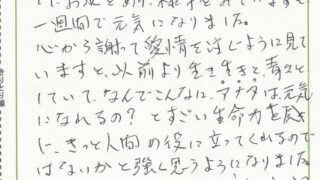 一週間で元気になりました。
心から謝って愛情を注ぐように見て
いますと、以前より生き生きと青々と
していて、なんでこんなに、アナタは元気
になれるの？とすごい生命力を感
じ、きっと人間の役に立ってくれるので
はないかと強く思うようになりました。